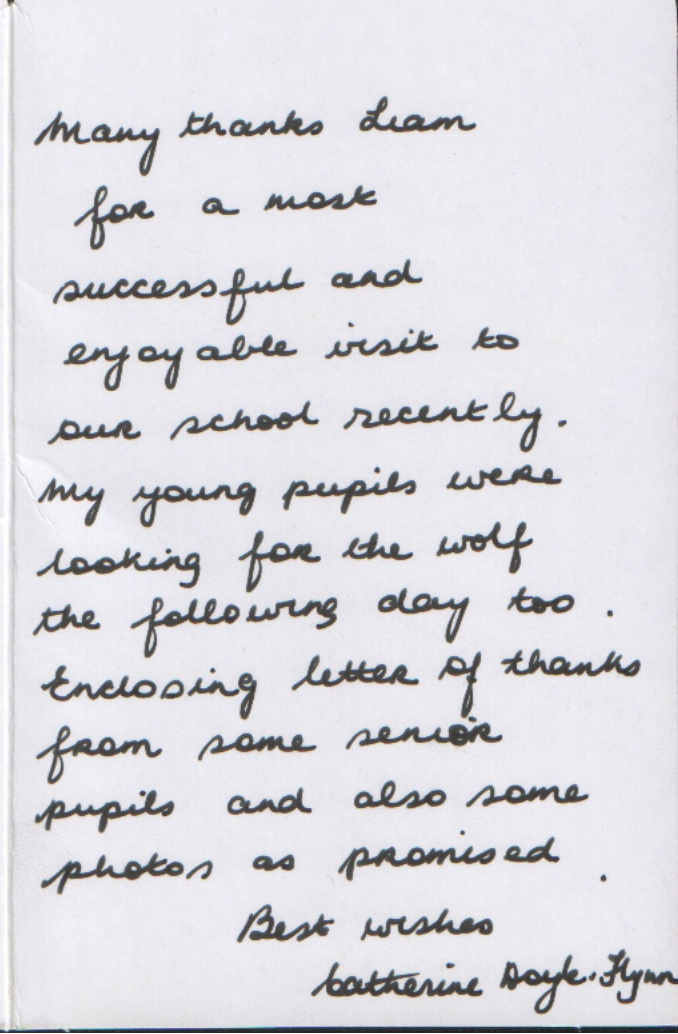 Many thanks Liam
for a most
successful and
enjoyable visit to
our school recently.
My young pupils were
looking for the wolf
the following day too.
Enclosing letter of thanks
from some senior
pupils and also some
photos as promised.
Best wishes
Catherine Doyle-Flynn